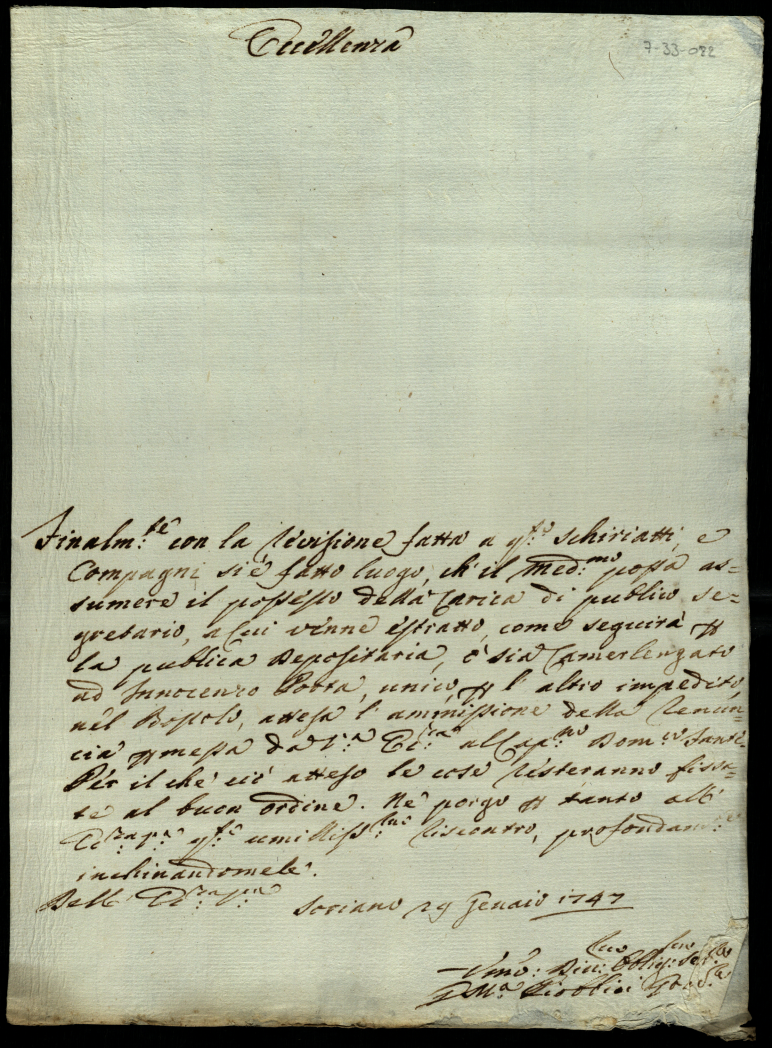 Eccellenza
7-33-022
Finalm:te con la revisione fatta a q:to Schiriatti, e
Compagni si è fatto luogo, ch' il Med:mo possa as=
sumere il possesso della Carica di publico se=
gretario, a cui venne estratto, come seguirà p
la publica Depositaria, ò sia Camerlengato
ad Innocenzo Porta, unico, p l' altro impedito,
nel Bossolo, attesa l' ammissione della renun=
cia pmessa da l' al Cap:no Dom:co Santi.
Per il che ciò atteso le cose resteranno fissa=
te al buon ordine. Ne porgo p tanto all'
umiliss:mo riscontro, profondam:e
inchinandomele.
Dell'
Soriano 29 Gennaio 1747
Umo: Div: Oblig: Ser: